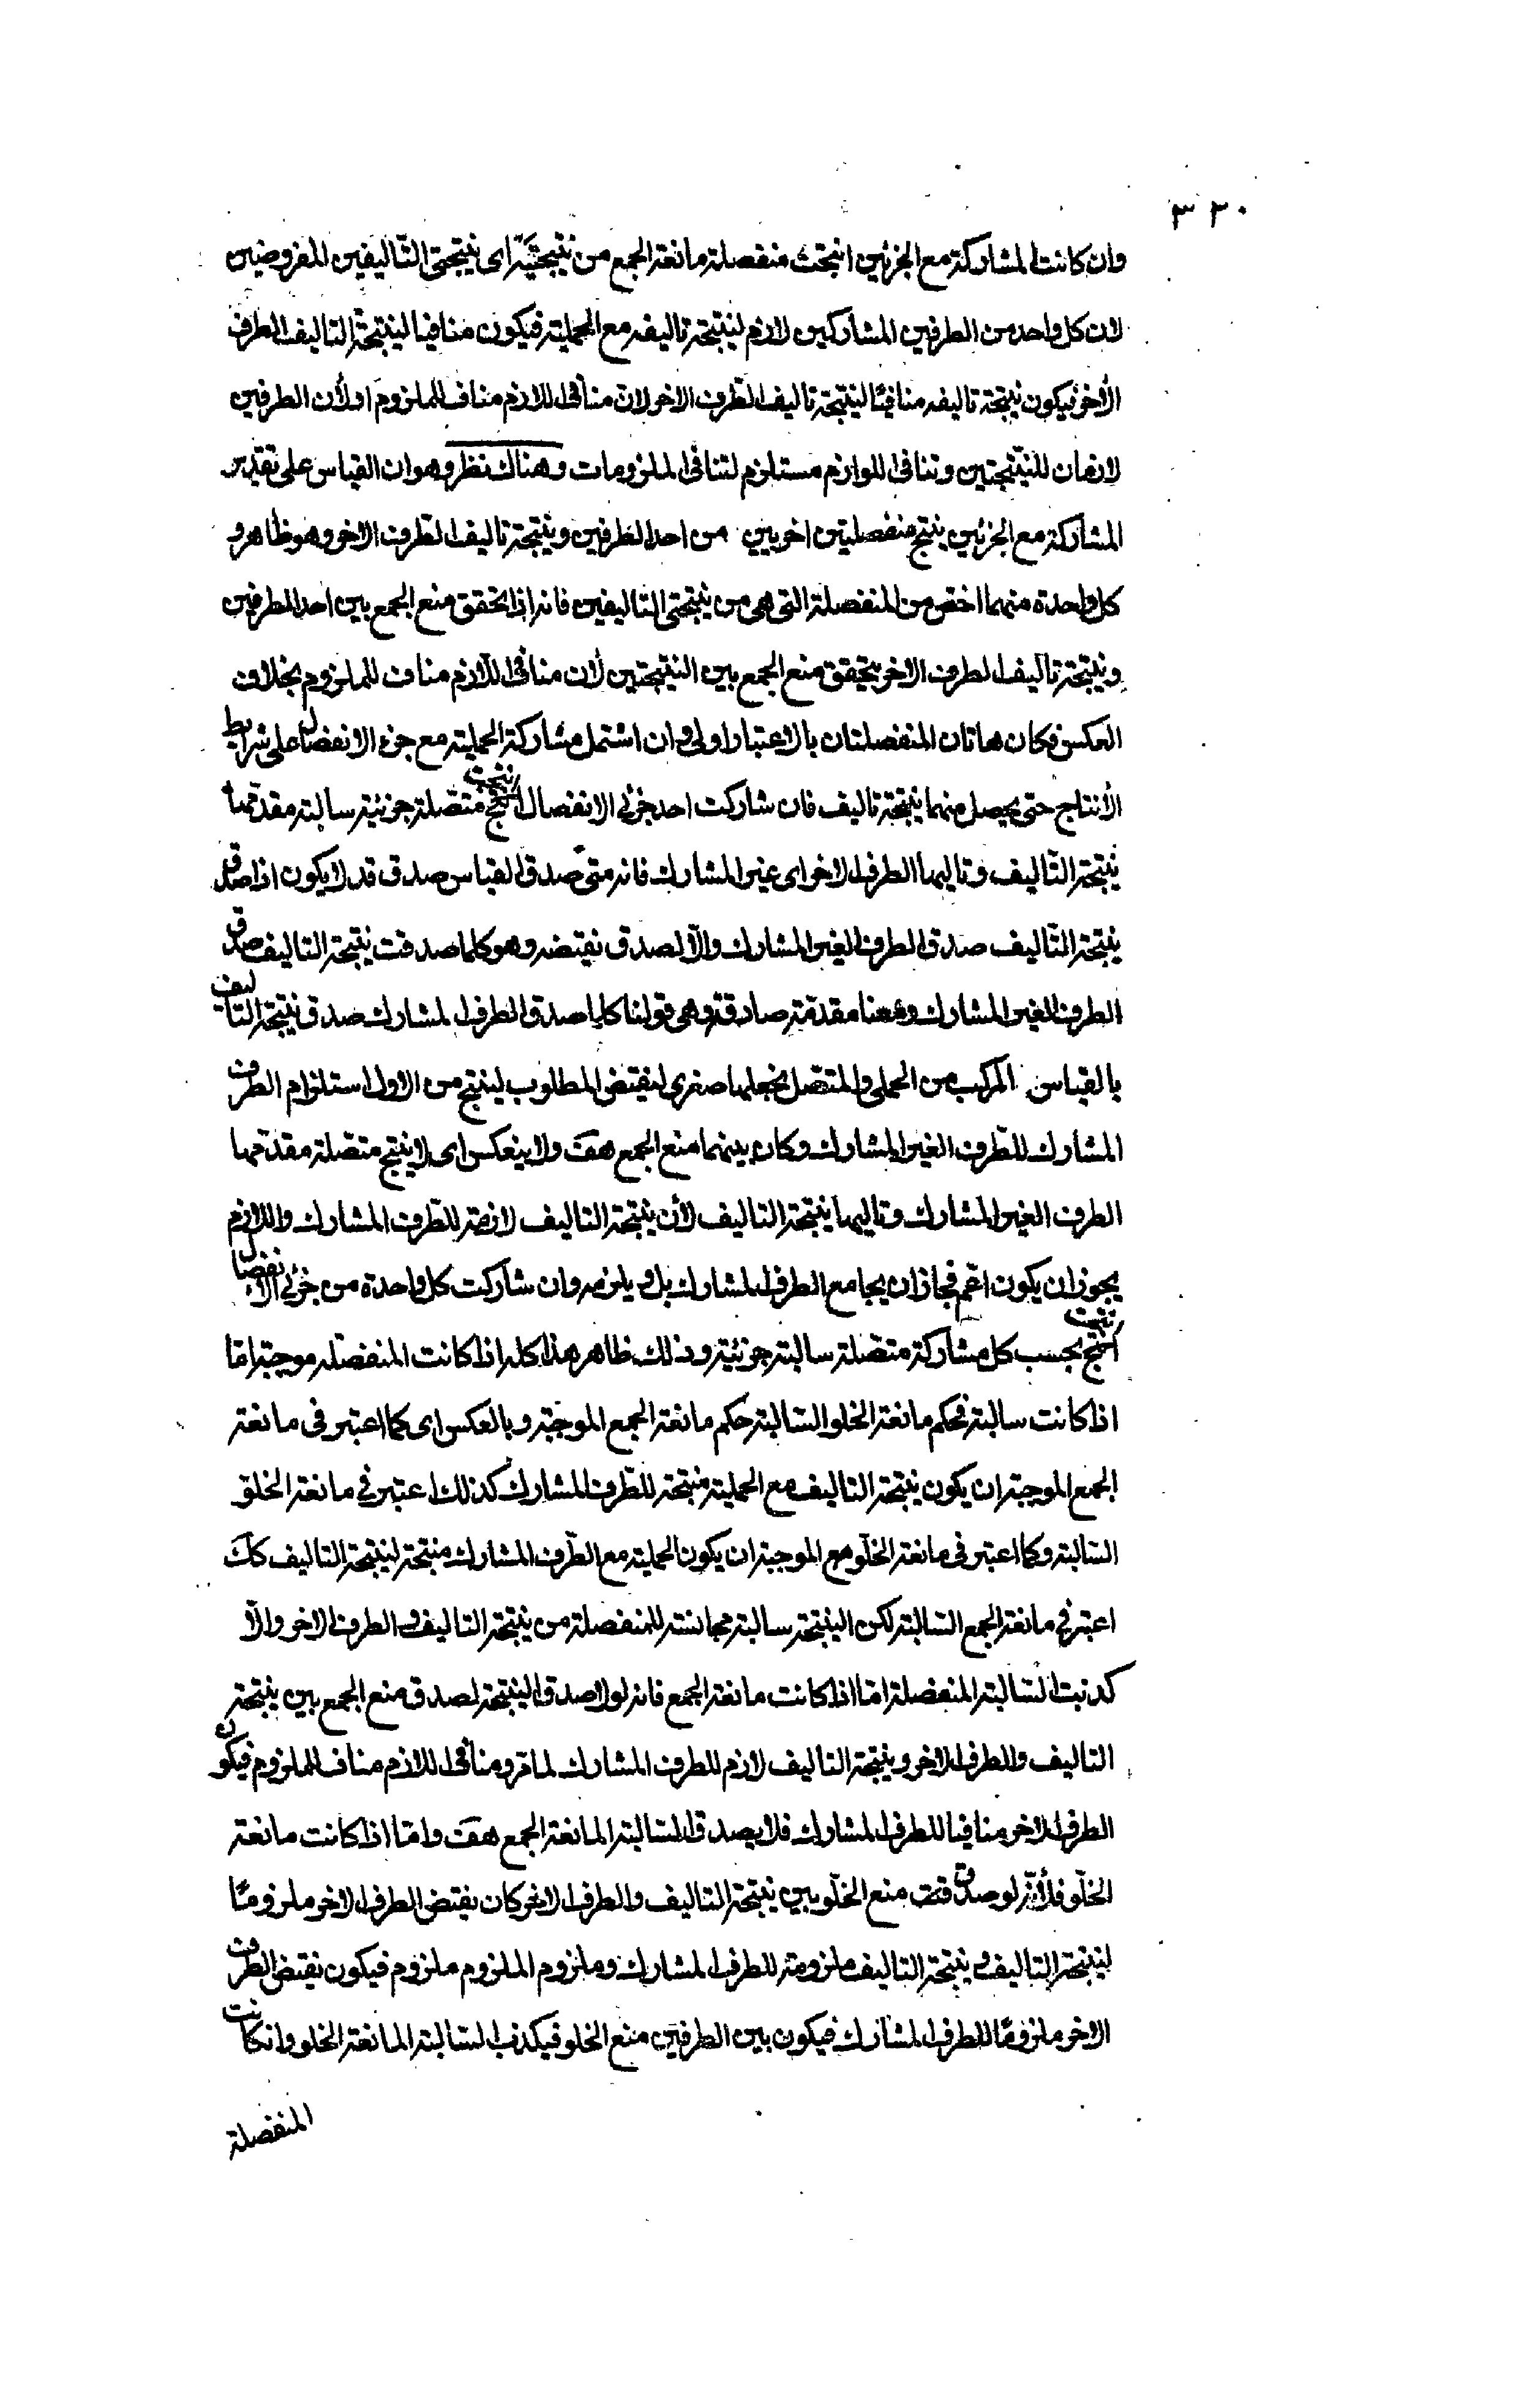 ٣٢٠
وان كانت المشاركة مع الجزئين انتجت منفصلة مانعة الجمع من نتيجتيه اى نتيجتى التّاليفين المفروضين
لان كل واحد من الطرفين المشاركين لازم لنتيجة تاليفه مع الحملية فيكون منافيا لنتيجة التاليف الطرف
الأخر فيكون نتيجة تاليفه منافيًا لنتيجة تاليف الطّرف الاخر لان منافى اللازم مناف للملزوم او لأن الطرفين
لازمان للنتيجتين وتنافى اللوازم مستلزم لتنافى الملزومات وهناك نظر وهو ان القياس على تقدير
المشاركة مع الجزئين ينتج منفصلتين اخريين من احد الطرفين ونتيجة تاليف الطّرف الاخر وهو ظاهر و
كل واحدة منهما اخص من المنفصلة التى هى من نتيجتى التاليفين فانه اذا تحقق منع الجمع بين احد الطرفين
ونتيجة تاليف الطرف الاخر يتحقق منع الجمع بين النتيجتين لأن منافى اللازم مناف للملزوم بخلاف
العكس فكان هاتان المنفصلتان بالاعتبار اولى وان اشتمل مشاركة الحملية مع جزء الانفصال على شرايط
الأنتاج حتى يحصل منهما نتيجة تاليف فان شاركت احد جزئى الانفصال انتجت متّصلة جزئية سالبة مقدّمها
نتيجة التّاليف وتاليها الطرف الاخر اى غير المشارك فانه متى صدق القياس صدق قد لا يكون اذا صدق
نتيجة التّاليف صدق الطرف الغير المشارك والّا لصدق نقيضه وهو كلما صدقت نتيجة التاليف صدق
الطرف الغير المشارك ومعنا مقدمة صادقة وهى قولنا كلما صدق الطرف المشارك صدق نتيجة التاليف
بالقياس المركب من الحملى والمتّصل نجعلها صغرى لنقيض المطلوب لينتج من الاول استلزام الطرف
المشارك للطّرف الغير المشارك وكان بينهما منع الجمع هف ولا ينعكس اى لا ينتج متّصلة مقدّمها
الطرف الغير المشارك وتاليها نتيجة التاليف لأن نتيجة التاليف لازمة للطّرف المشارك واللازم
يجوز ان يكون اعّم فجاز ان يجامع الطرف المشارك بل ويلزمه وان شاركت كل واحدة من جزئى الانفصال
انتجت بحسب كل مشاركة متصّلة سالبة جزئية وذلك ظاهر هذا كله اذا كانت المنفصّله موجبة امّا
اذا كانت سالبة فحكم مانعة الخلو السّالبة حكم مانعة الجمع الموجبّة وبالعكس اى كما اعتبر فى مانعة
الجمع الموجبة ان يكون نتيجة التاليف مع الحملية منتجة للطّرف المشارك كذلك اعتبر فى مانعة الخلوّ
السّالبة وكما اعتبر فى مانعة الخلّو مع الموجبة ان يكون الحملية مع الطّرف المشارك منتجة لنتيجة التاليف كك
اعتبر فى مانعة الجمع السّالبة لكن النتيجة سالبة مجانسة للمنفصلة من نتيجة التاليف و الطرف الاخر والّا
كذبت السّالبة المنفصلة امّا اذا كانت مانعة الجمع فانه لولا صدق النتيجة لصدق منع الجمع بين نتيجة
التاليف والطرف الاخر ونتيجة التاليف لازم للطرف المشارك لما مّر ومنافى اللازم مناف للملزوم فيكون
الطرف الاخر منافيا للطرف المشارك فلا يصدق السّالبة المانعة الجمع هف وامّا اذا كانت مانعة
الخلّو فلأنّه لو صدق منع الخلّو بين نتيجة التاليف والطرف الاخر كان نقيض الطرف الاخر ملزومًا
لنتيجة التاليف و نتيجة التاليف ملزومة للطرف المشارك وملزوم الملزوم ملزوم فيكون نقيض الطرف
الاخر ملزومًا للطرف المشارك فيكون بين الطرفين منع الخلو فيكذب السّالبة المانعة الخلو وانكانت
المنفصلة